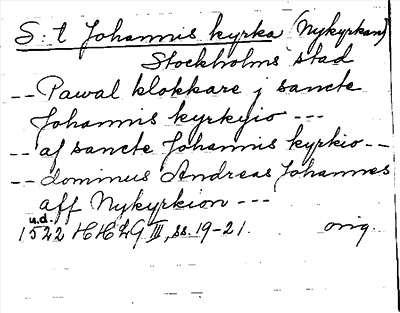 S:t Johannis kyrka (Nykyrkan)
Stockholms stad
-- Pawal klokkare j sancte
Johannis kyrkyio ---
-- af sancte Johannis kyrkio --
-- dominus Andreas Johannes
aff Nykyrkion ---
u.d.
1522 HH III, ss. 19-21. orig.